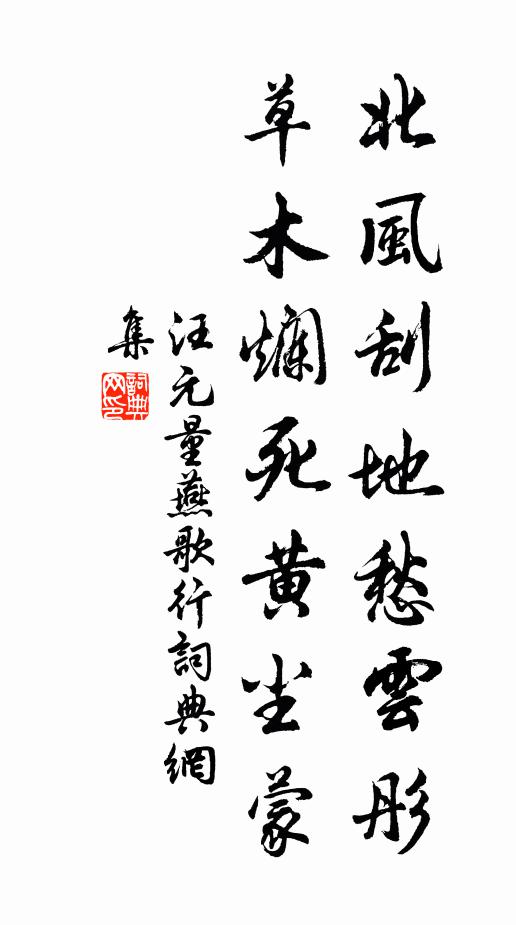 北風刮地愁雲彤
草木爛死黄尘蒙
汪元量燕歌行詞典網
集
詞典
网印